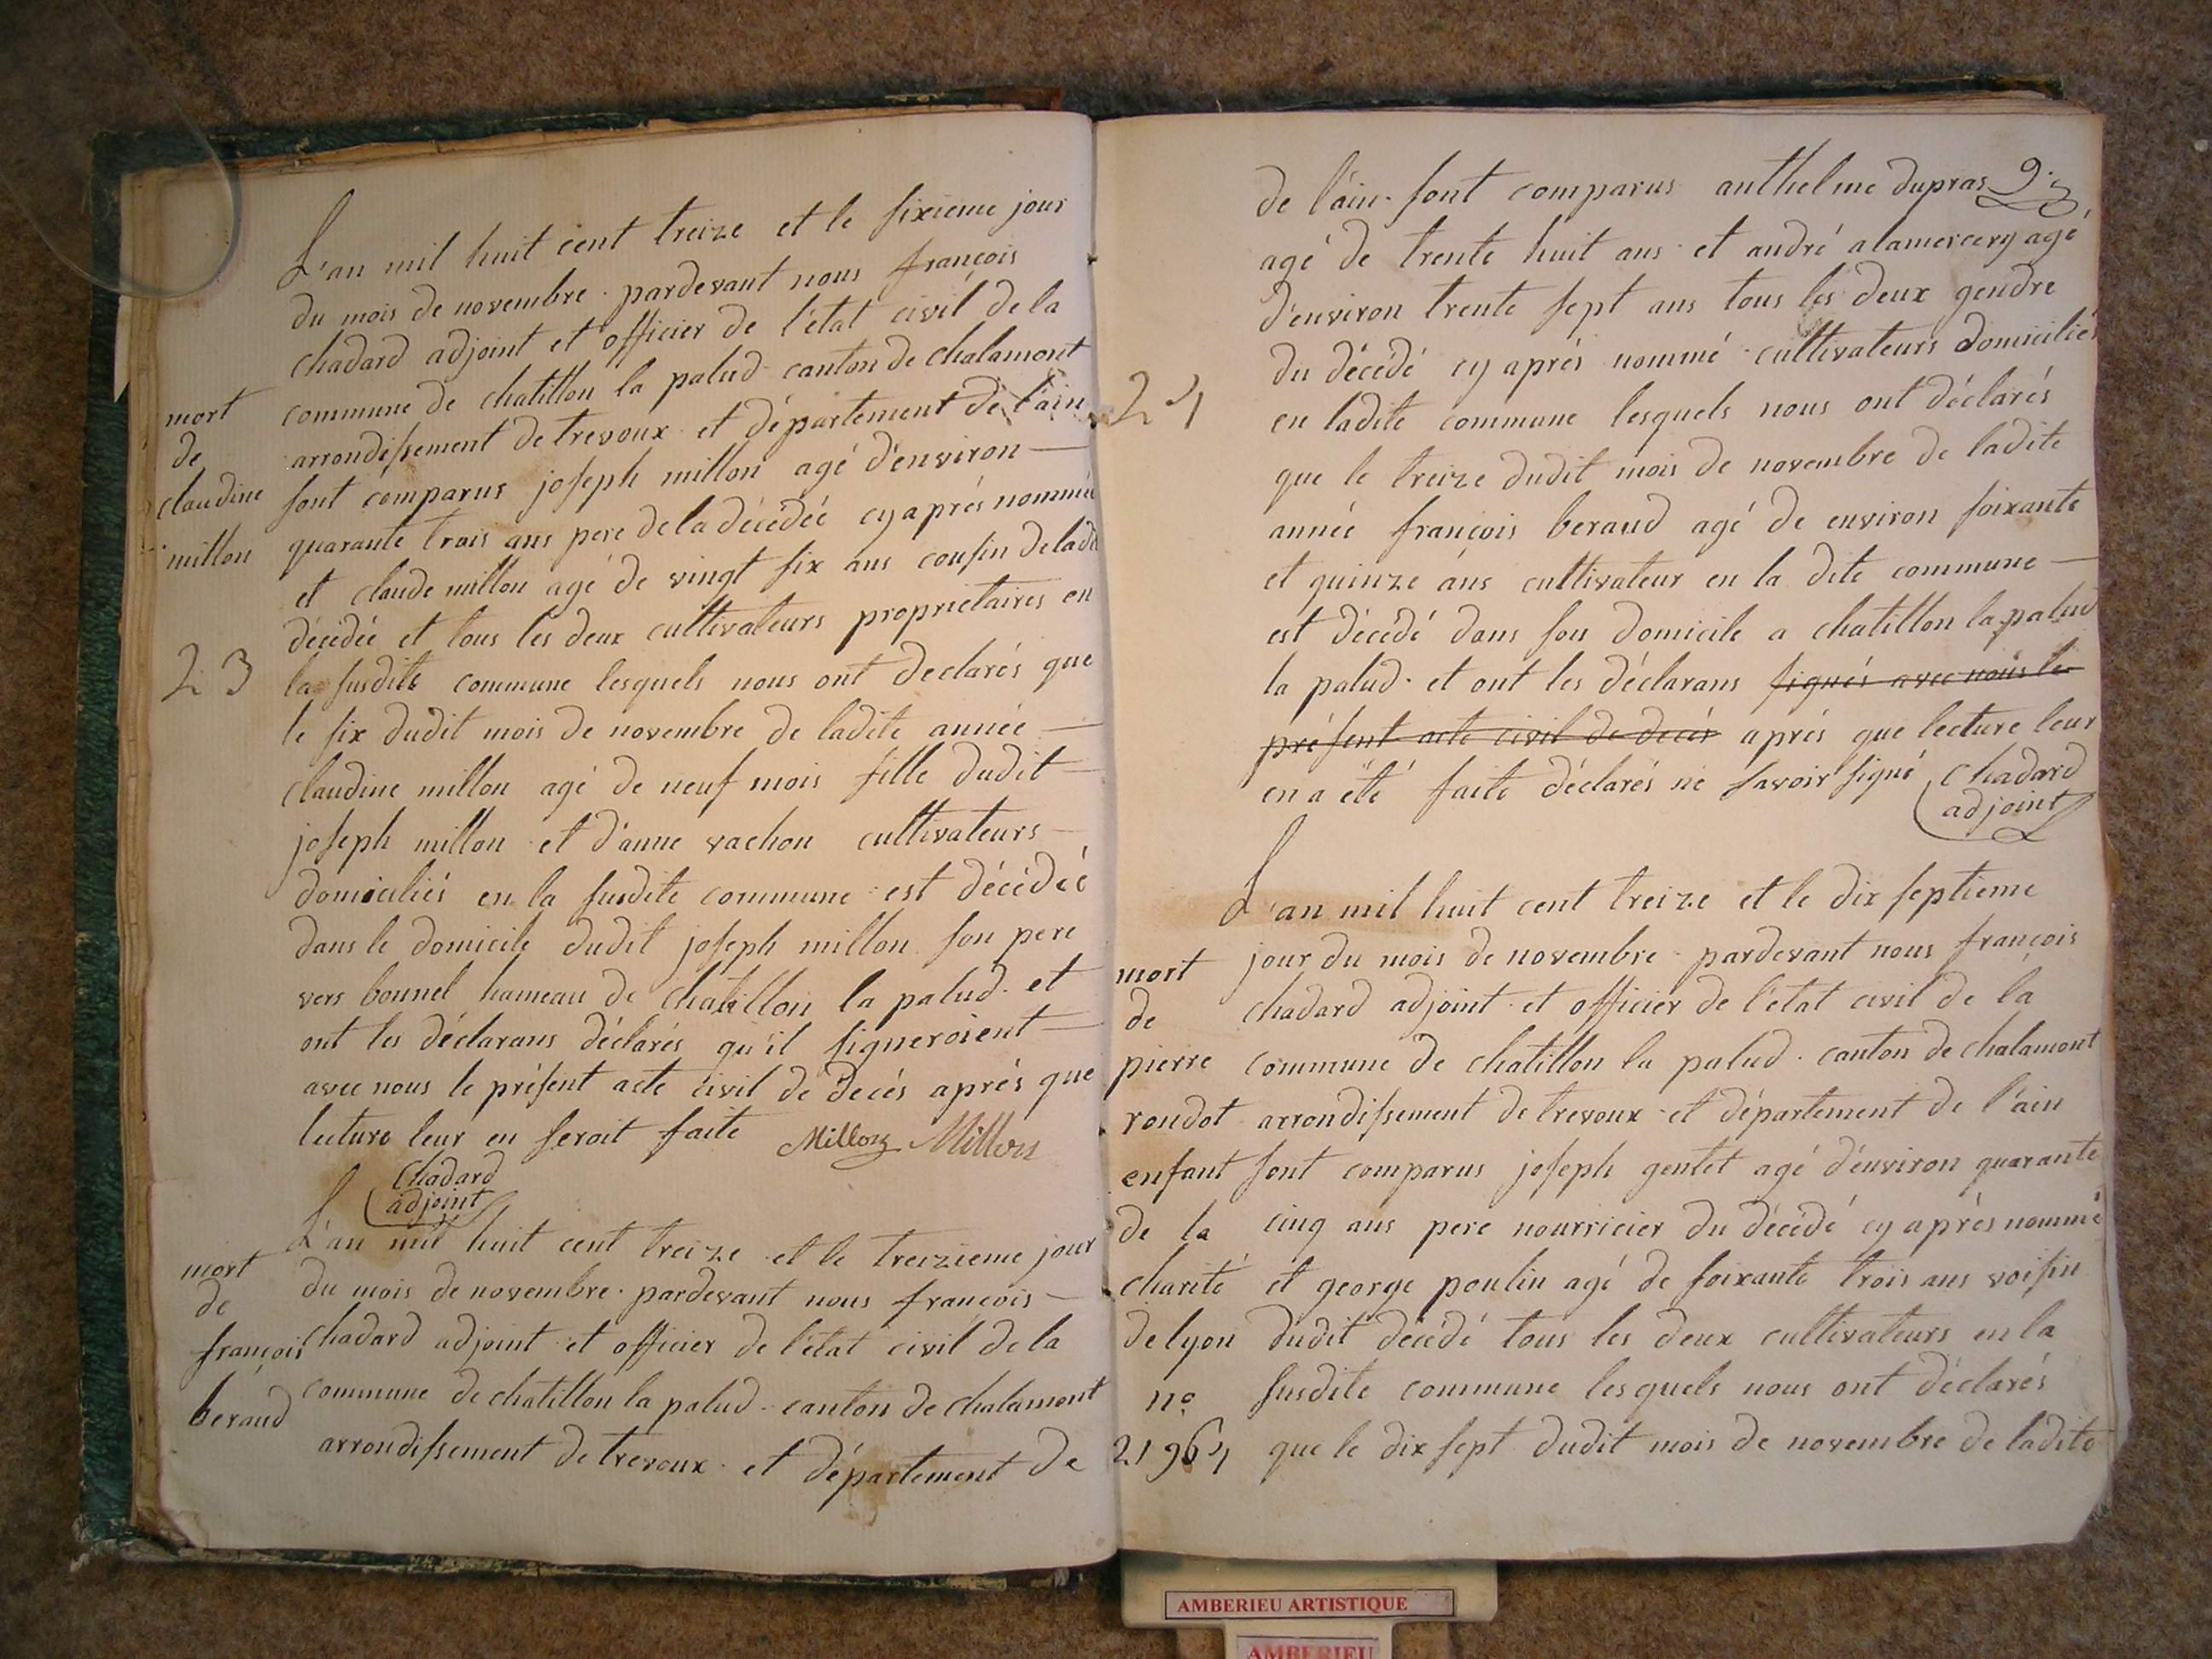 L'an mil huit cent treize et le sixieme jour
du mois de novembre. pardevant nous françois
chadard adjoint et officier de l'état civil de la
commune de chatillon la palud canton de chalamont
arrondissement de trevoux et département de l'ain
sont comparus joseph millon agé d'environ —
quarante trois ans pere de la décédée cy après nommée
et claude millon agé de vingt six ans cousin de ladite
décédée et tous les deux cultivateurs proprietaires en
la susdite commune lesquels nous ont declarés que
le six dudit mois de novembre de ladite année —
claudine millon agé de neuf mois fille dudit —
joseph millon et d'anne vachon cultivateurs —
domiciliés en la susdite commune est décédée
dans le domicile dudit joseph millon son pere
vers bonnel hameau de chatillon la palud. et
ont les déclarans déclarés qu'il signeroient —
avec nous le présent acte civil de decés après que
lecture leur en seroit faite Millon Millon
chadard
adjoint
mort
de
claudine
millon
23
L'an mil huit cent treize et le treizieme jour
du mois de novembre. pardevant nous françois —
chadard adjoint et officier de l'état civil de la
commune de chatillon la palud. canton de chalamont
arrondissement de trevoux. et département de
mort
de
françois
beraud
de l'ain. sont comparus anthelme dupras 9.
agé de trente huit ans et andré alamercery agé
d'environ trente sept ans tous les deux gendre
du décédé cy après nommé cultivateurs domiciliés
en ladite commune lesquels nous ont déclarés
que le treize dudit mois de novembre de ladite
année françois beraud agé de environ soixante
et quinze ans cultivateur en la dite commune —
est décédé dans son domicile a chatillon la palud
la palud. et ont les déclarans signés avec nous le
présent acte civil de decés après que lecture leur
en a été faite déclarés ne savoir signé chadard
adjoint
24
L'an mil huit cent treize et le dix septieme
jour du mois de novembre. pardevant nous françois
chadard adjoint et officier de l'etat civil de la
commune de chatillon la palud. canton de chalamont
arrondissement de trevoux et département de l'ain
sont comparus joseph gentet agé d'environ quarante
cinq ans pere nourricier du décédé cy après nommé
et george poulin agé de soixante trois ans voisin
dudit décédé tous les deux cultivateurs en la
susdite commune lesquels nous ont déclarés
que le dix sept dudit mois de novembre de ladite
mort
de
pierre
rondot
enfant
de la
charité
de lyon
no
21964
AMBERIEU ARTISTIQUE
AMBERIEU